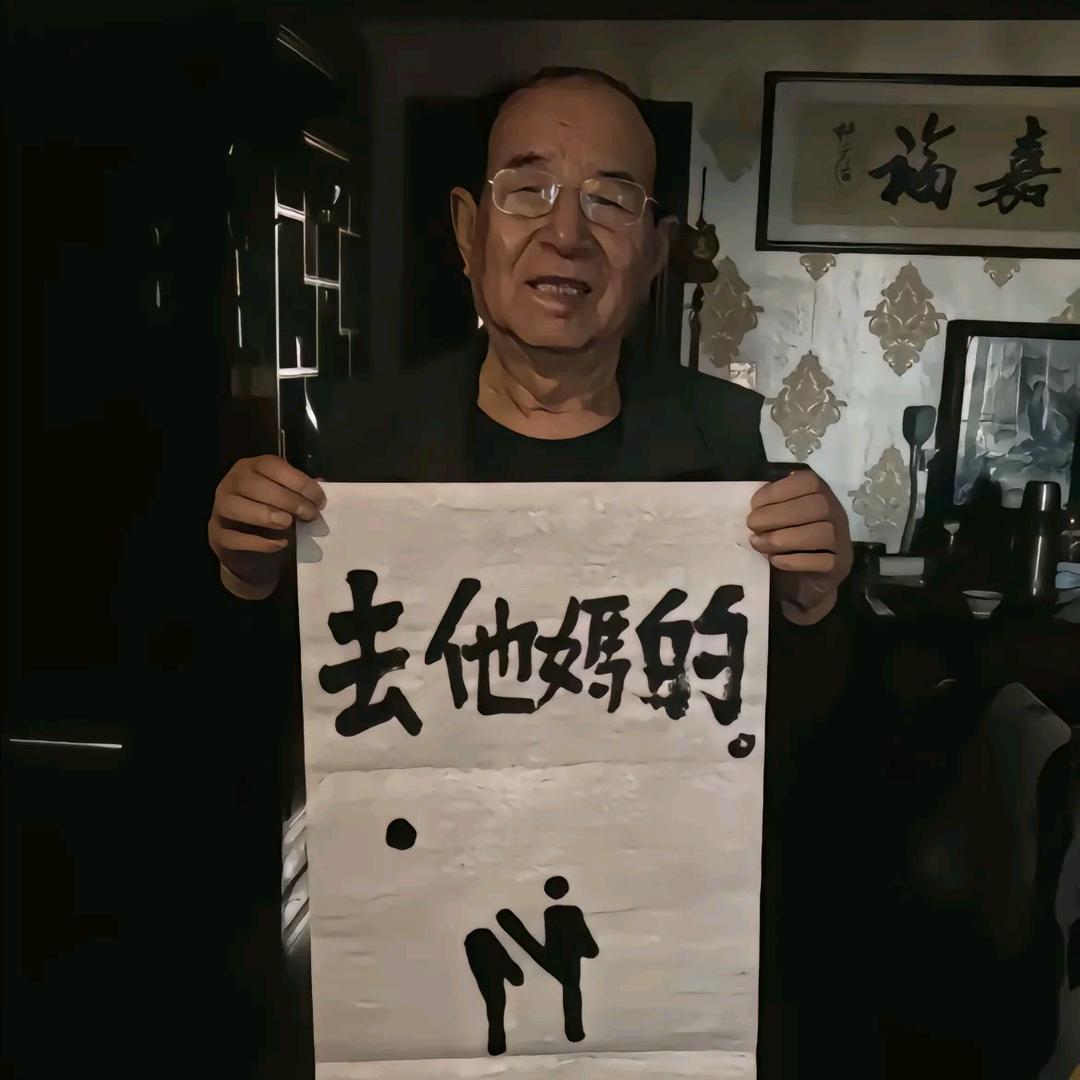 嘉福
去他媽的。